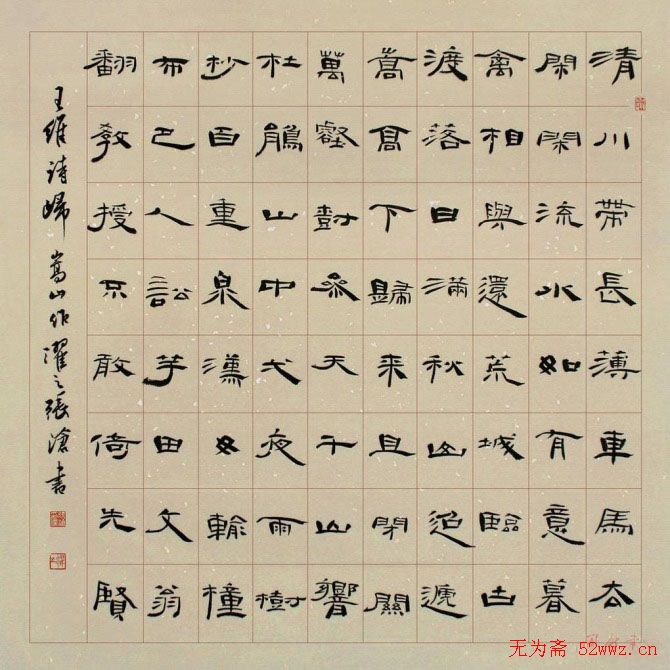 清川帶長薄車馬去
閑閑流水如有意暮
禽相與還荒城臨古
渡落日滿秋山迢遞
嵩高下歸來且閉關
萬壑樹參天千山響
杜鵑山中弌夜雨樹
杪百重泉漢女輸橦
布巴人訟芋田文翁
翻教授不敢倚先賢
王維詩歸嵩山作濯之張滄書
无为斋 52wwz.cn